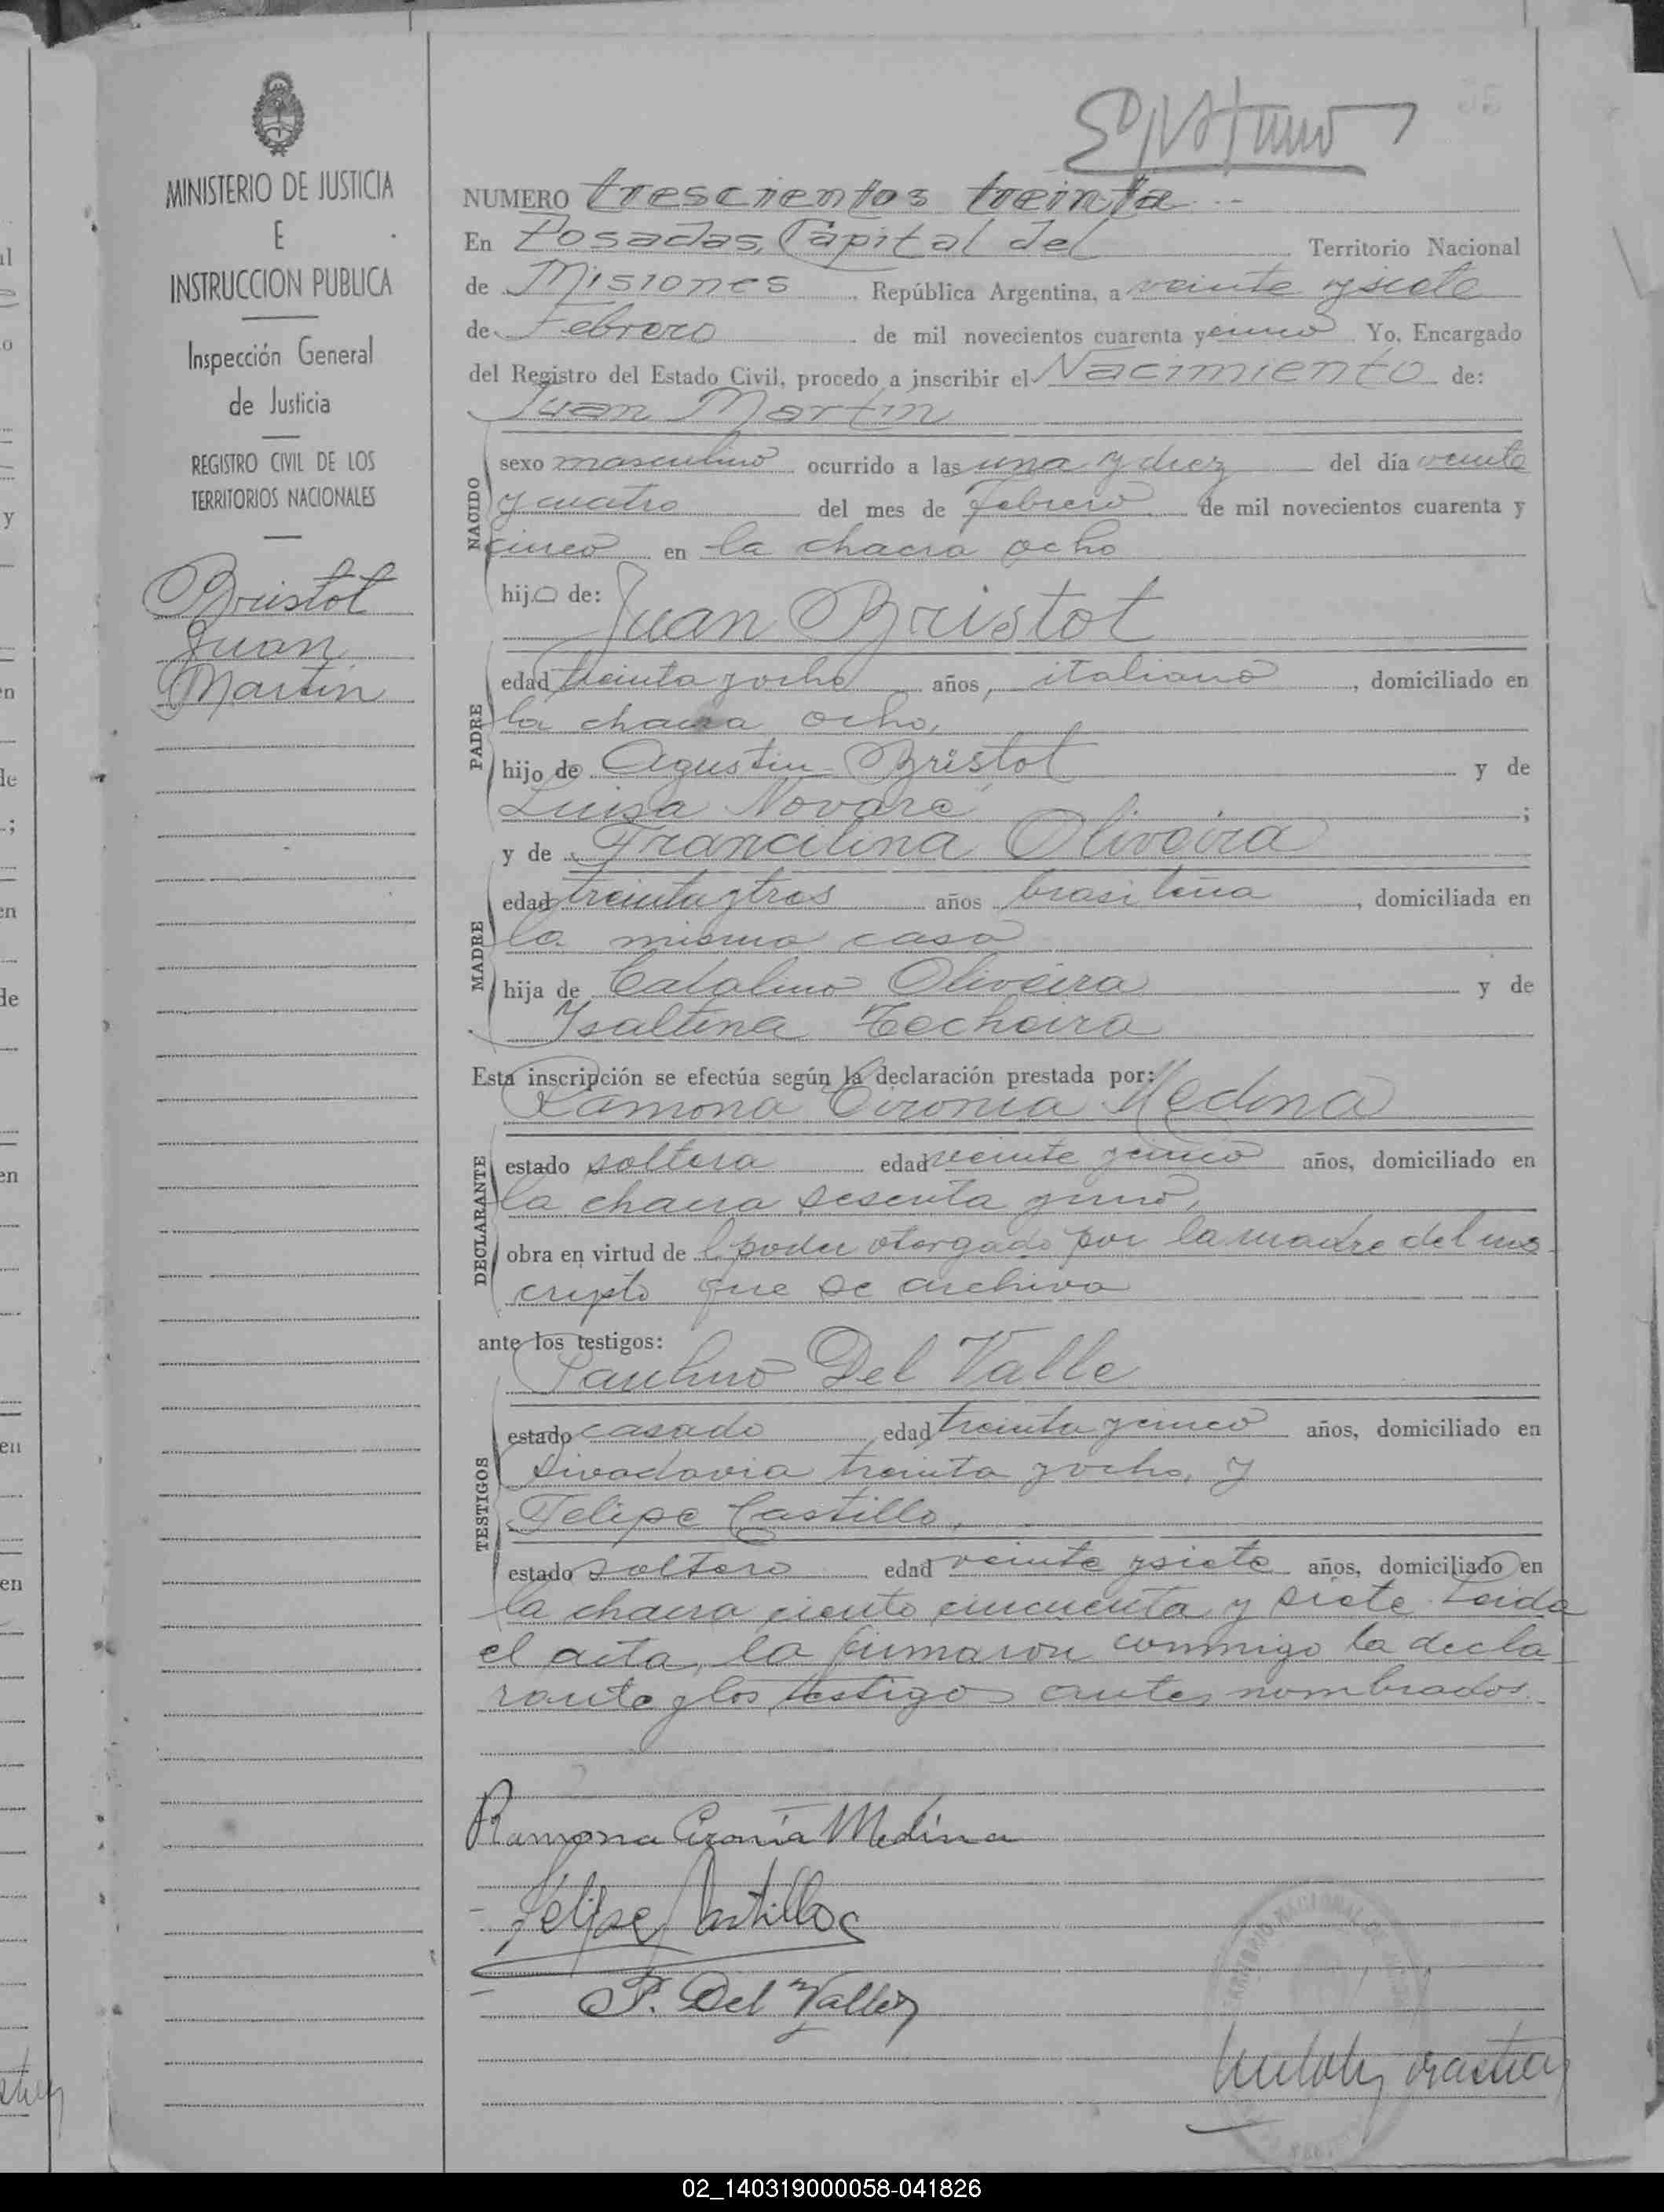 MINISTERIO DE JUSTICIA
E
INSTRUCCION PUBLICA
Inspección General
de Justicia
REGISTRO CIVIL DE LOS
TERRITORIOS NACIONALES
Bristot
Juan
Martin
NUMERO trescientos treinta
En Posadas, Capital del Territorio Nacional
de Misiones República Argentina, a veinte y siete
de Febrero de mil novecientos cuarenta y cinco Yo, Encargado
del Registro del Estado Civil, procedo a inscribir el Nacimiento de:
Juan Martin
NACIDO
sexo masculino ocurrido a las una y diez del día veinte
y cuatro del mes de febrero de mil novecientos cuarenta y
cinco en la chacra ocho
hijo de:
Juan Bristot
PADRE
edad treinta y ocho años, italiano, domiciliado en
la chacra ocho,
hijo de Agustin Bristot y de
Luisa Novare;
y de Francilina Oliveira
MADRE
edad treinta y tres años brasileña, domiciliada en
la misma casa
hija de Catalino Oliveira y de
Ysaltina Techeira
Esta inscripción se efectúa según la declaración prestada por:
Ramona Cironia Medina
DECLARANTE
estado soltera edad veinte y cinco años, domiciliado en
la chacra sesenta y uno,
obra en virtud de l poder otorgado por la madre del ins
cripto que se archiva
ante los testigos:
Paulino Del Valle
TESTIGOS
estado casado edad treinta y cinco años, domiciliado en
Rivadavia treinta y ocho, y
Felipe Castillo,
estado soltero edad veinte y siete años, domiciliado en
la chacra ciento cincuenta y siete. Leida
el acta, la firmaron conmigo la decla
rante y los testigo antes nombrados.
Ramona Cironia Medina
Felipe Castillo
P. Del Valle
02_140319000058-041826